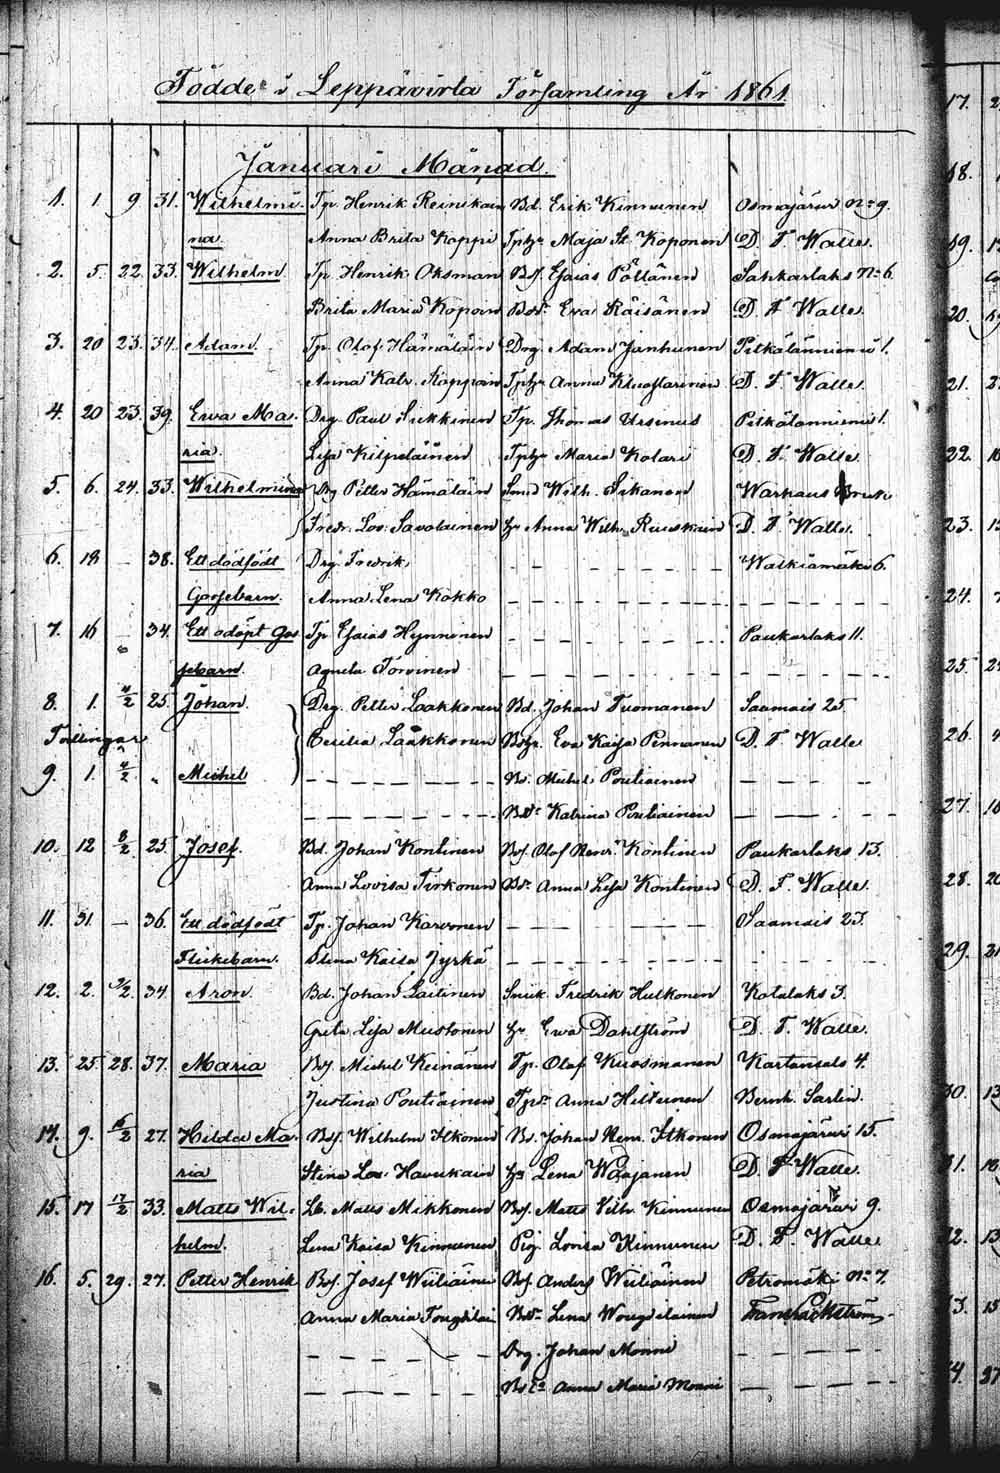 Födde i Leppävirta Församling År 1861
Januari Månad
1. 1 9 31. Wilhelmi- Tp. Henrik Reinikain Bd. Erik Kinnunen Osmajärvi No 9.
na. Anna Brita Koppi Maja St. Koponen D. F. Walle.
2. 5. 22. 33. Wilhelm Tp. Henrik Oksman Bdf. Esaias Pöllänen Sahkarlaks No 6.
Brita Maria Kopoin Eva Räisänen D. F. Walle.
3. 20 23. 34. Adam. Tp. Olof Hämäläin Drg. Adam Janhunen Pitkälänniemi 1.
Anna Katr. Koppoin Anna D. F. Walle.
4. 20 23. 39. Ewa Ma- Drg. Paul Sickkinen Tp. Thomas Ursinus Pitkälanniemi 1.
ria. Lisa Kilpeläinen Maria Kolari D. F. Walle.
5. 6. 24. 33. Wilhelmina Drg Petter Hämäläin Smed Wilh. Sikanen Warkaus Bruk
Fredr. Lov. Savolainen hu Anna Wilh. Ruuskain D. F. Walle.
6. 18 — 38. Ett dödfödt Drg. Fredrik Walkiamäki 6.
Gossebarn. Anna Lena Kokko
7. 16 — 34. Ett odöpt Gos Tp Esaias Hynninen Paukarlaks 11.
sebarn. Agneta Torvinen
8. 1. 4/2 25. Johan. Drg. Petter Laakkonen Bd. Johan Tuomanen Saamais 25.
Tvillingar Cecilia Laakkonen Eva Kaisa Pennanen D. F. Walle
9. 1. 4/2 " Michel Bd. Michel Poutiainen
Katrina Poutiainen
10. 12 8/2 25. Josef. Bd. Johan Kontinen Bdf. Olof Henr. Kontinen Paukarlaks 13.
Anna Lovisa Tirkonen Anna Lisa Kontinen D. F. Walle.
11. 31. — 36. Ett dödfödt Tp. Johan Karvonen Saamais 23.
Flickebarn. Stina Kaisa Jyrkä
12. 2. 2/2. 34. Aron. Bd. Johan Laitinen Snick. Fredrik Hulkonen Kotalaks 3.
Greta Lisa Mustonen hu. Ewa Dahlström D. F. Walle.
13. 25. 28. 37. Maria Bdf. Michel Keinänen Tp. Olof Kuosmanen Kartansalo 4.
Justina Poutiainen Anna Hiltunen Bernh. Sarlin.
14. 9. 16/2 27. Hilda Ma- Bdf. Wilhelm Itkonen Bd. Johan Henr. Itkonen Osmajärvi 15.
ria Stina Lov. Havukain hu Lena Waajanen D. F. Walle.
15. 17 17/2 33. Matts Wil- Matts Mikkonen Bdf. Matts Vilh. Kinnunen Osmajärvi 9.
helm. Lena Kaisa Kinnunen Pig. Lovisa Kinnunen D. F. Walle
16. 5. 29. 27. Petter Henrik Bdf. Josef Wiiliäine Bdf Anders Wiiliäinen Petromäki No 7.
Anna Maria Lena
Drg. Johan Monni
Anna Maria Monni
17.
18.
19.
20.
21.
22.
23.
24.
25.
26.
27.
28.
29.
30.
31.